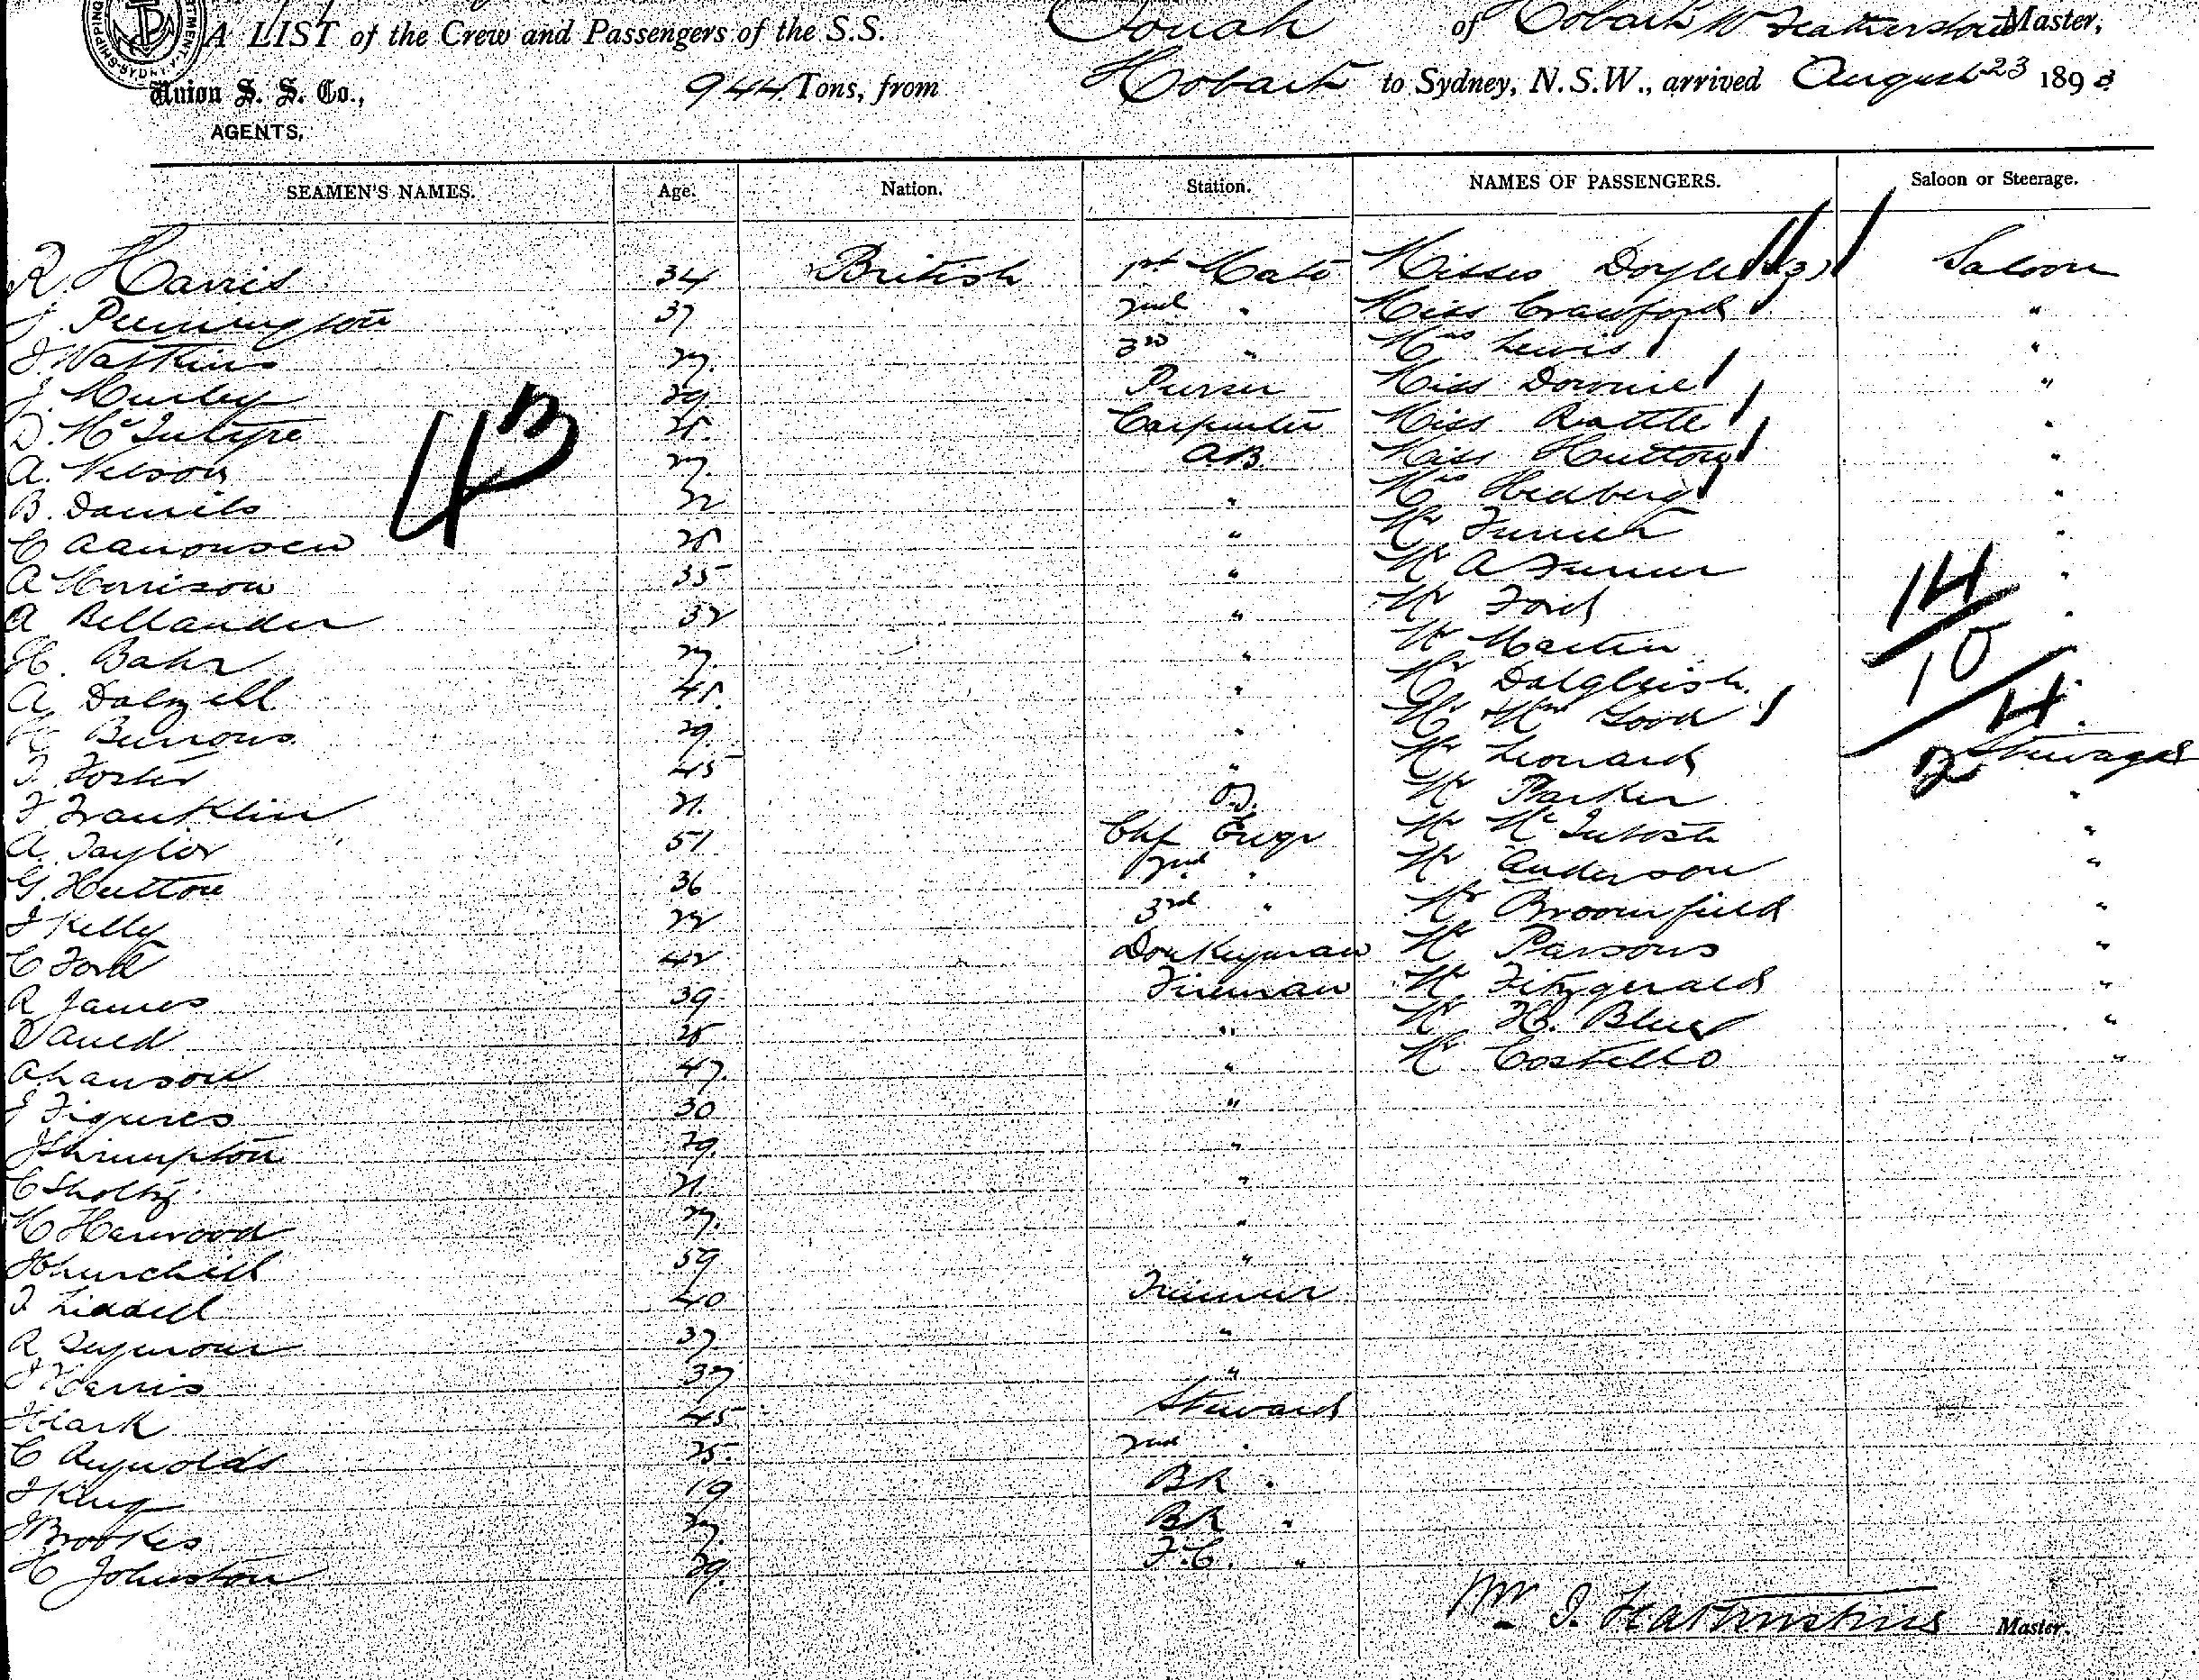 A LIST of the Crew and Passengers of the S.S. of Hobart W Featherstone Master,
Union S. S. Co., 944 Tons, from Hobart to Sydney, N.S.W., arrived August 23 189
AGENTS.
SEAMEN'S NAMES. Age. Nation. Station. NAMES OF PASSENGERS. Saloon or Steerage.
R. Harris 34 British 1st Mate Misses Doyle (3) Saloon
J. Pennington 37 2nd " Miss Crawford "
J Watkins 27. 3rd " Mrs Lewis "
J. Murley 29 Purser Miss Downie "
D. McIntyre 25. Carpenter Miss Rattle "
A. Nelson 27. A.B. Miss Hutton "
B. Daniels 32 " Mrs Hedberg "
C Aanonsen 25 " Mr "
A Morrison 35 " Mr A Turner "
A Bellander 32 " Mr Ford "
H. Bahr 27. " Mr Martin
A. Dalzell 45. " Mr Dalgleish
Burrows 29 " Mr & Mrs Good
T. Foster 45 " Mr Leonard Steerage
F Franklin 21. O.S. Mr Parker "
A. Taylor 51 Chf Engr Mr McIntosh "
G. Hutton 36 2nd " Mr Anderson "
J Kelly 22 3rd " Mr Broomfield "
C Ford 42 Donkeyman Mr Parsons "
R James 39 Fireman Mr Fitzgerald "
D Auld 25 " Mr H. Blue "
A Lanson 47. " Mr Costello "
J Figures 30 "
J Shrimpton 29. "
C Sholtz 21. "
H Harwood 27. "
J Churchill 59 "
T. Liddell 40 Trimmer
R Seymour 37. "
J Harris 37 "
J Clark 45 Steward
C Reynolds 25. 2nd "
J King 19 BR "
J Brookes 27. BR "
H Johnston 29. F.C. "
14
10
4
Master.